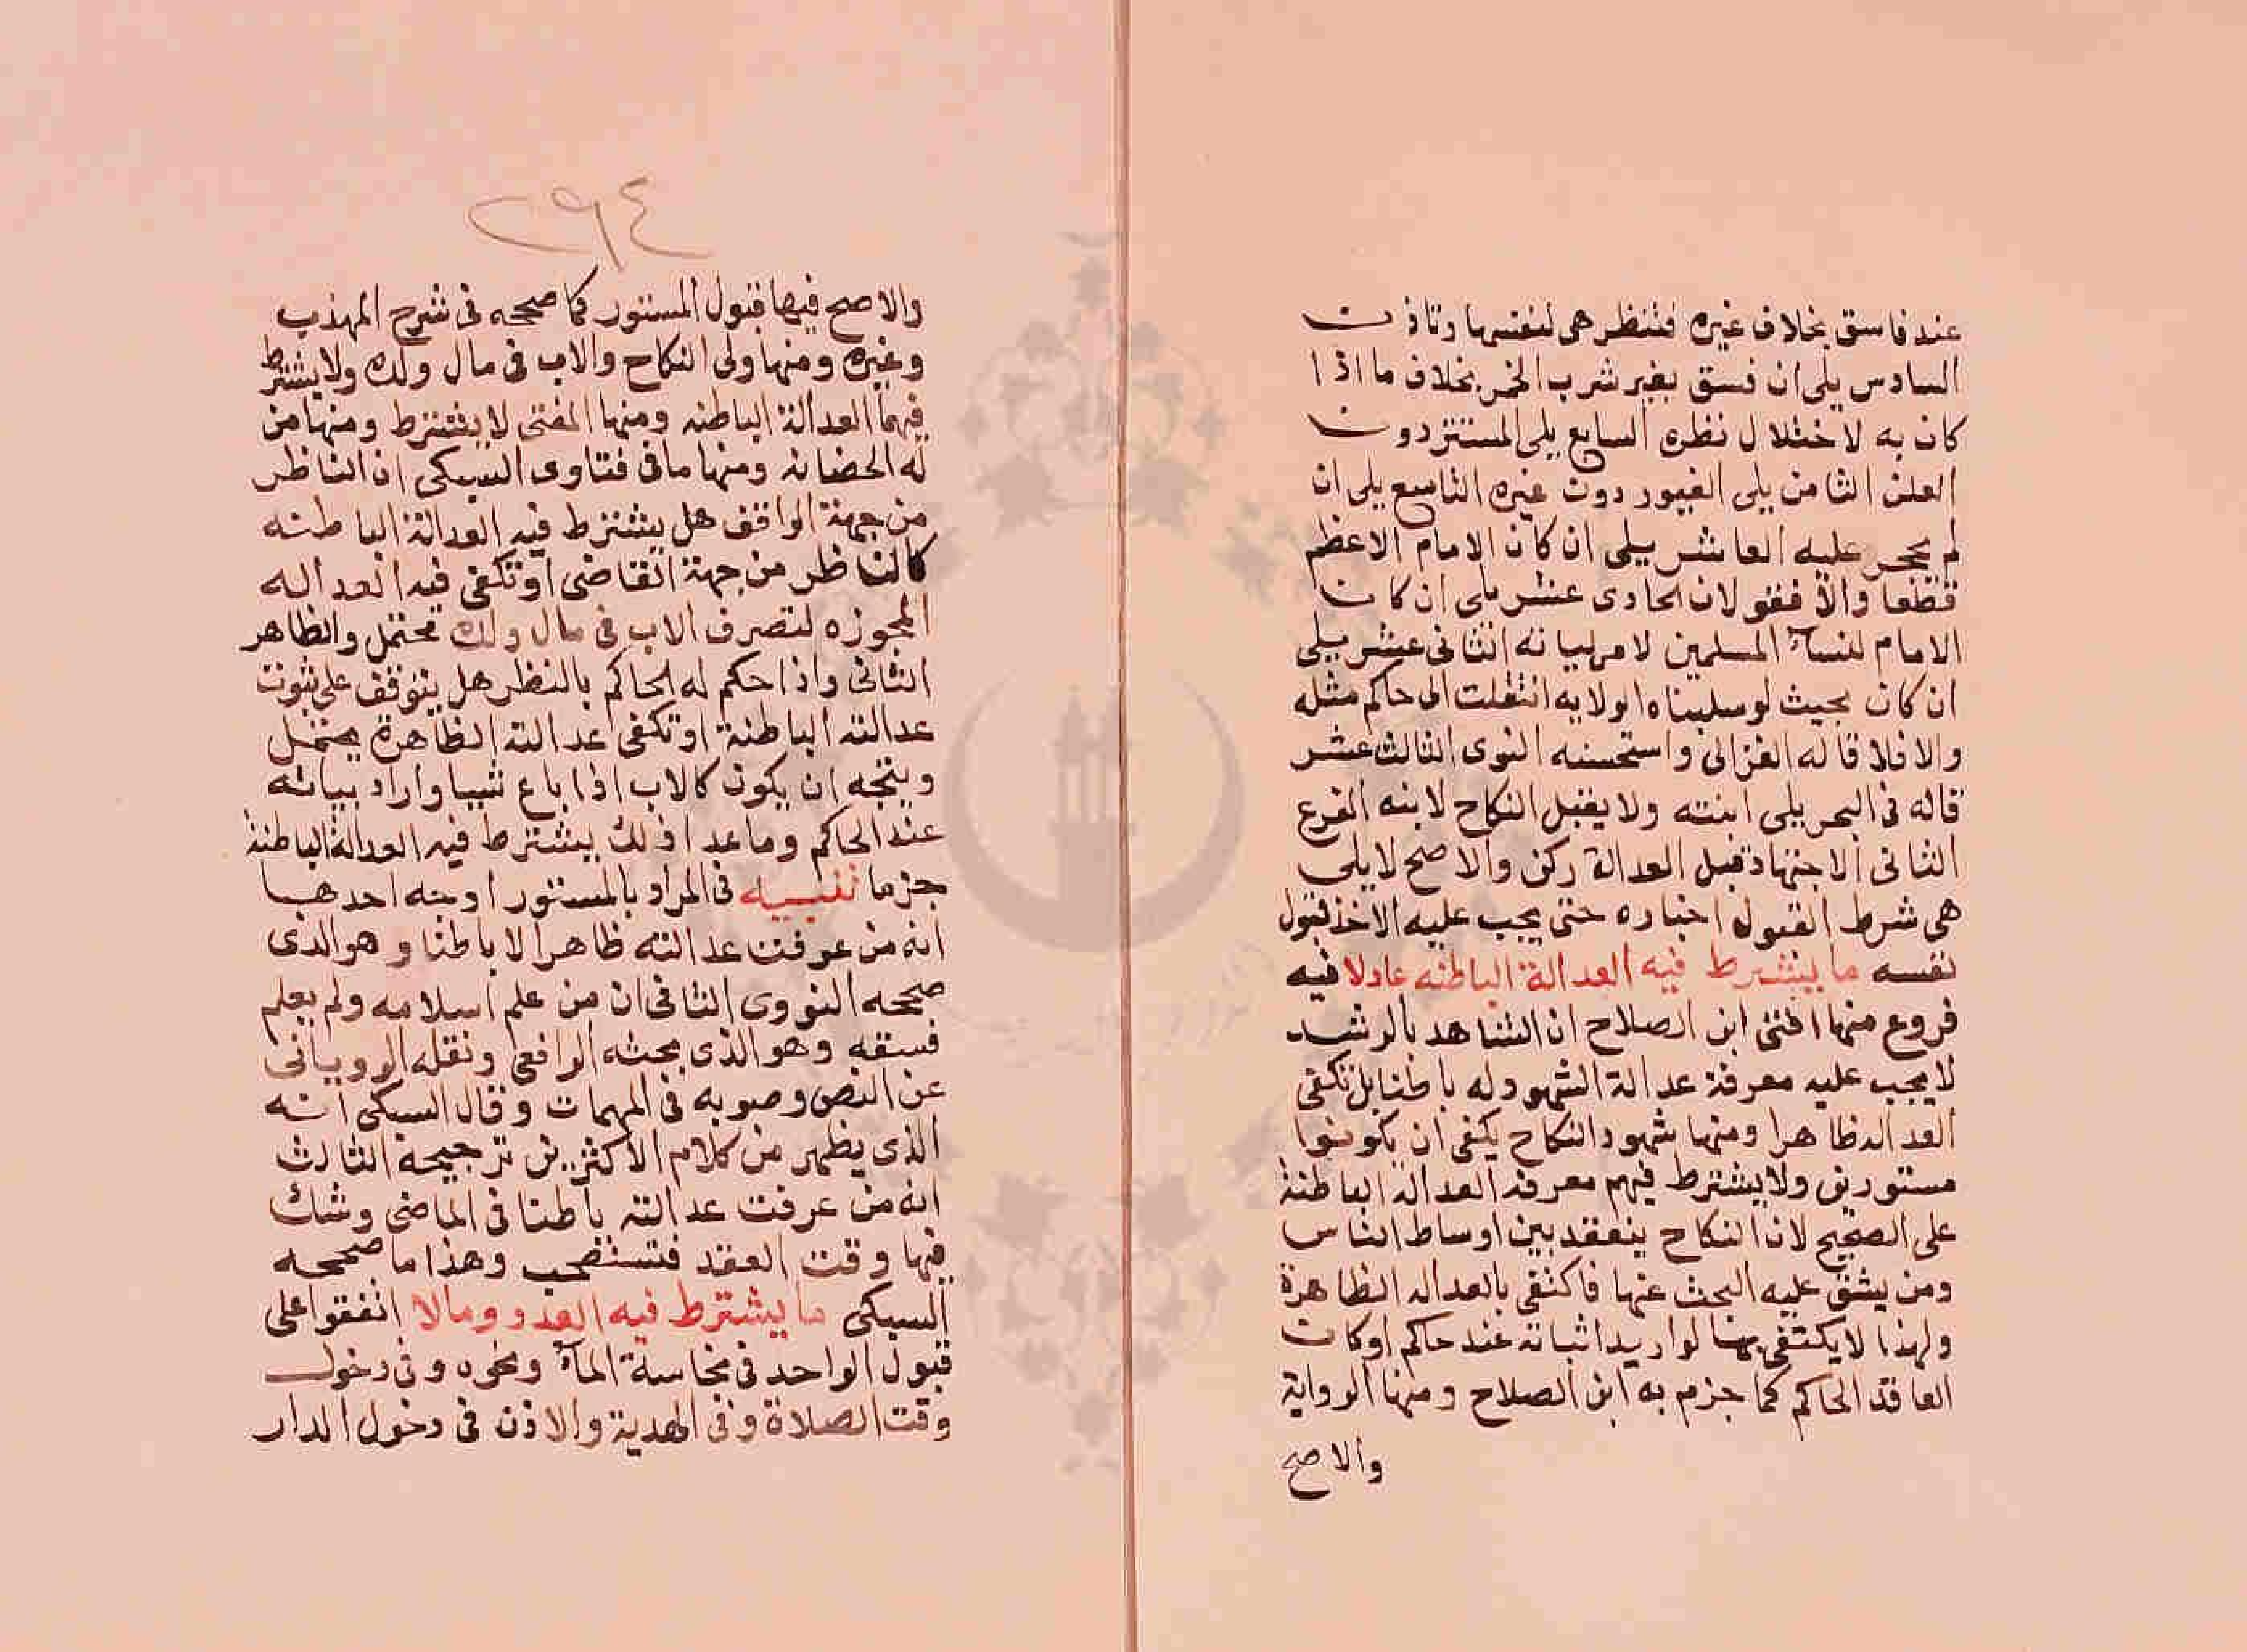 عند فاسق بخلاف غيره فتنظر هي لنفسها وتاذن
السادس يلي ان فسق بغير شرب الخمر بخلاف ما اذا
كان به لاختلال نظره السابع يلي المستتر دون
المعلن الثامن يلي الغيور دون غيره التاسع يلي ان
لم يحجر عليه العاشر يلي ان كان الامام الاعظم
قطعا والا فقولان الحادي عشر يلي ان كان
الامام لنساء المسلمين لا موليانه الثاني عشر يلي
ان كان بحيث لو سلبناه الولايه انتقلت الى حاكم مثله
والا فلا قاله الغزالي واستحسنه النوي الثالث عشر
قاله في البحر يلي ابنته ولا يقبل النكاح لابنه الفرع
الثاني الاجتهاد قبل العدالة ركن والاصح لا يلي
هي شرط القبول اخباره حتى يجب عليه الاخذ قبول
نفسه ما يشترط فيه العدالة الباطنه عادلا فيه
فروع منها افتى ابن الصلاح ان الشاهد بالرشد
لا يجب عليه معرفة عدالة الشهود له باطنا بل تكفي
العداله ظاهرا ومنها شهود النكاح يكفي ان يكونوا
مستورين ولا يشترط فيهم معرفة العدالة الباطنة
على الصحيح لان النكاح ينعقد بين اوساط الناس
ومن يشق عليه البحث عنها فاكتفي بالعداله الظاهرة
ولهذا لا يكتفى بها لو اريد اثباته عند حاكم او كان
العاقد الحاكم كما جزم به ابن الصلاح ومنها الرواية
والاصح
٢٩٤
والاصح فيها قبول المستور كما صححه في شرح المهذب
وغيره ومنها ولي النكاح والاب في مال ولده ولا يشترط
فيهما العدالة الباطنه ومنها المفتي لا يشترط ومنها من
له الحضانه ومنها ما في فتاوى السبكي ان الناظر
من جهة الواقف هل يشترط فيه العدالة الباطنه
كالناظر من جهة القاضي او تكفي فيه العداله
المجوزه لتصرف الاب في مال ولده محتمل والظاهر
الثاني واذا حكم له الحاكم بالنظر هل يتوقف على ثبوت
عدالته الباطنة او تكفي عدالته الظاهرة يحتمل
ويتجه ان يكون كالاب اذا باع شيا واراد بيانه
عند الحاكم وما عدا ذلك يشترط فيه العدالة الباطنة
جزما تنبيه في المراد بالمستور اوجه احدها
انه من عرفت عدالته ظاهرا لا باطنا وهو الذي
صححه النووي الثاني ان من علم اسلامه ولم يعلم
فسقه وهو الذي بحثه الرافعي ونقله الروياني
عن النص وصوبه في المهمات وقال السبكي انه
الذي يظهر من كلام الاكثرين ترجيحه الثالث
انه من عرفت عدالته باطنا في الماضي وشك
فيها وقت العقد فتستصحب وهذا ما صححه
السبكي ما يشترط فيه العدد وما لا اتفقوا على
قبول الواحد في نجاسة الماء ونحوه وفي دخول
وقت الصلاة وفي الهدية والاذن في دخول الدار